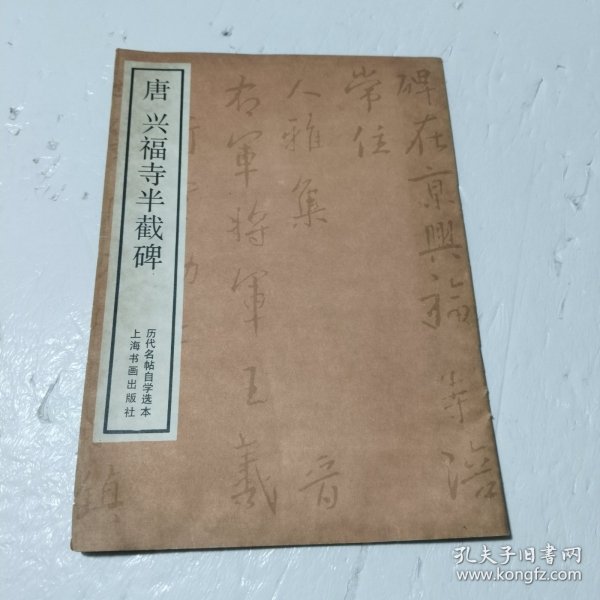 唐 兴福寺半截碑
历代名帖自学选本
上海书画出版社
碑在京興福寺陪
常住
人雅集 音
右軍将軍王羲
孔夫子旧书网
www.kongfz.com